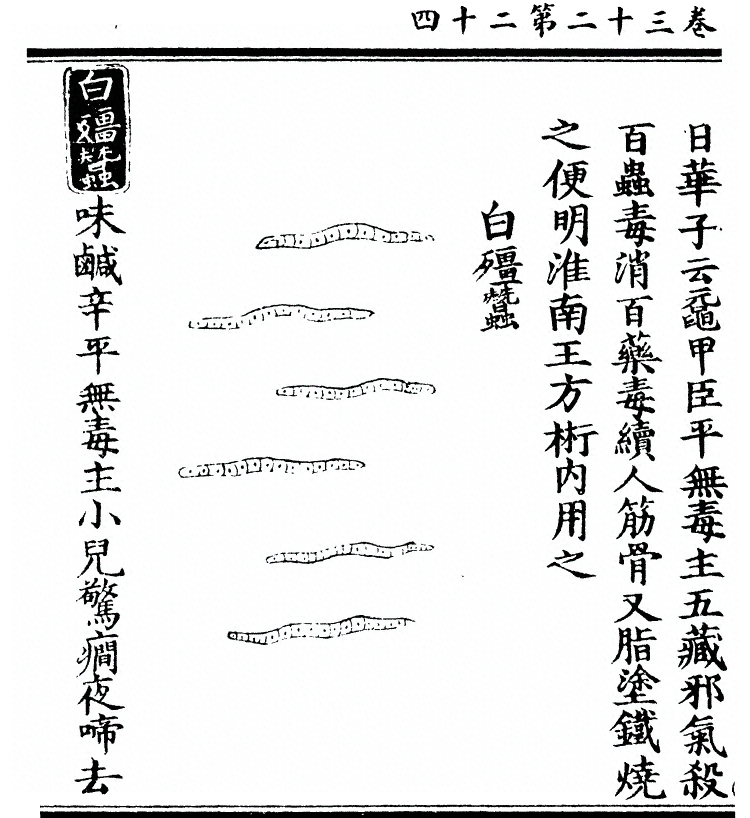 卷三十二第二十四
日華子云黿甲臣平無毒主五藏邪氣殺
百蟲毒消百藥毒續人筋骨又脂塗鐵燒
之便明淮南王方術內用之
白殭蠶
白殭蠶味鹹辛平無毒主小兒驚癇夜啼去